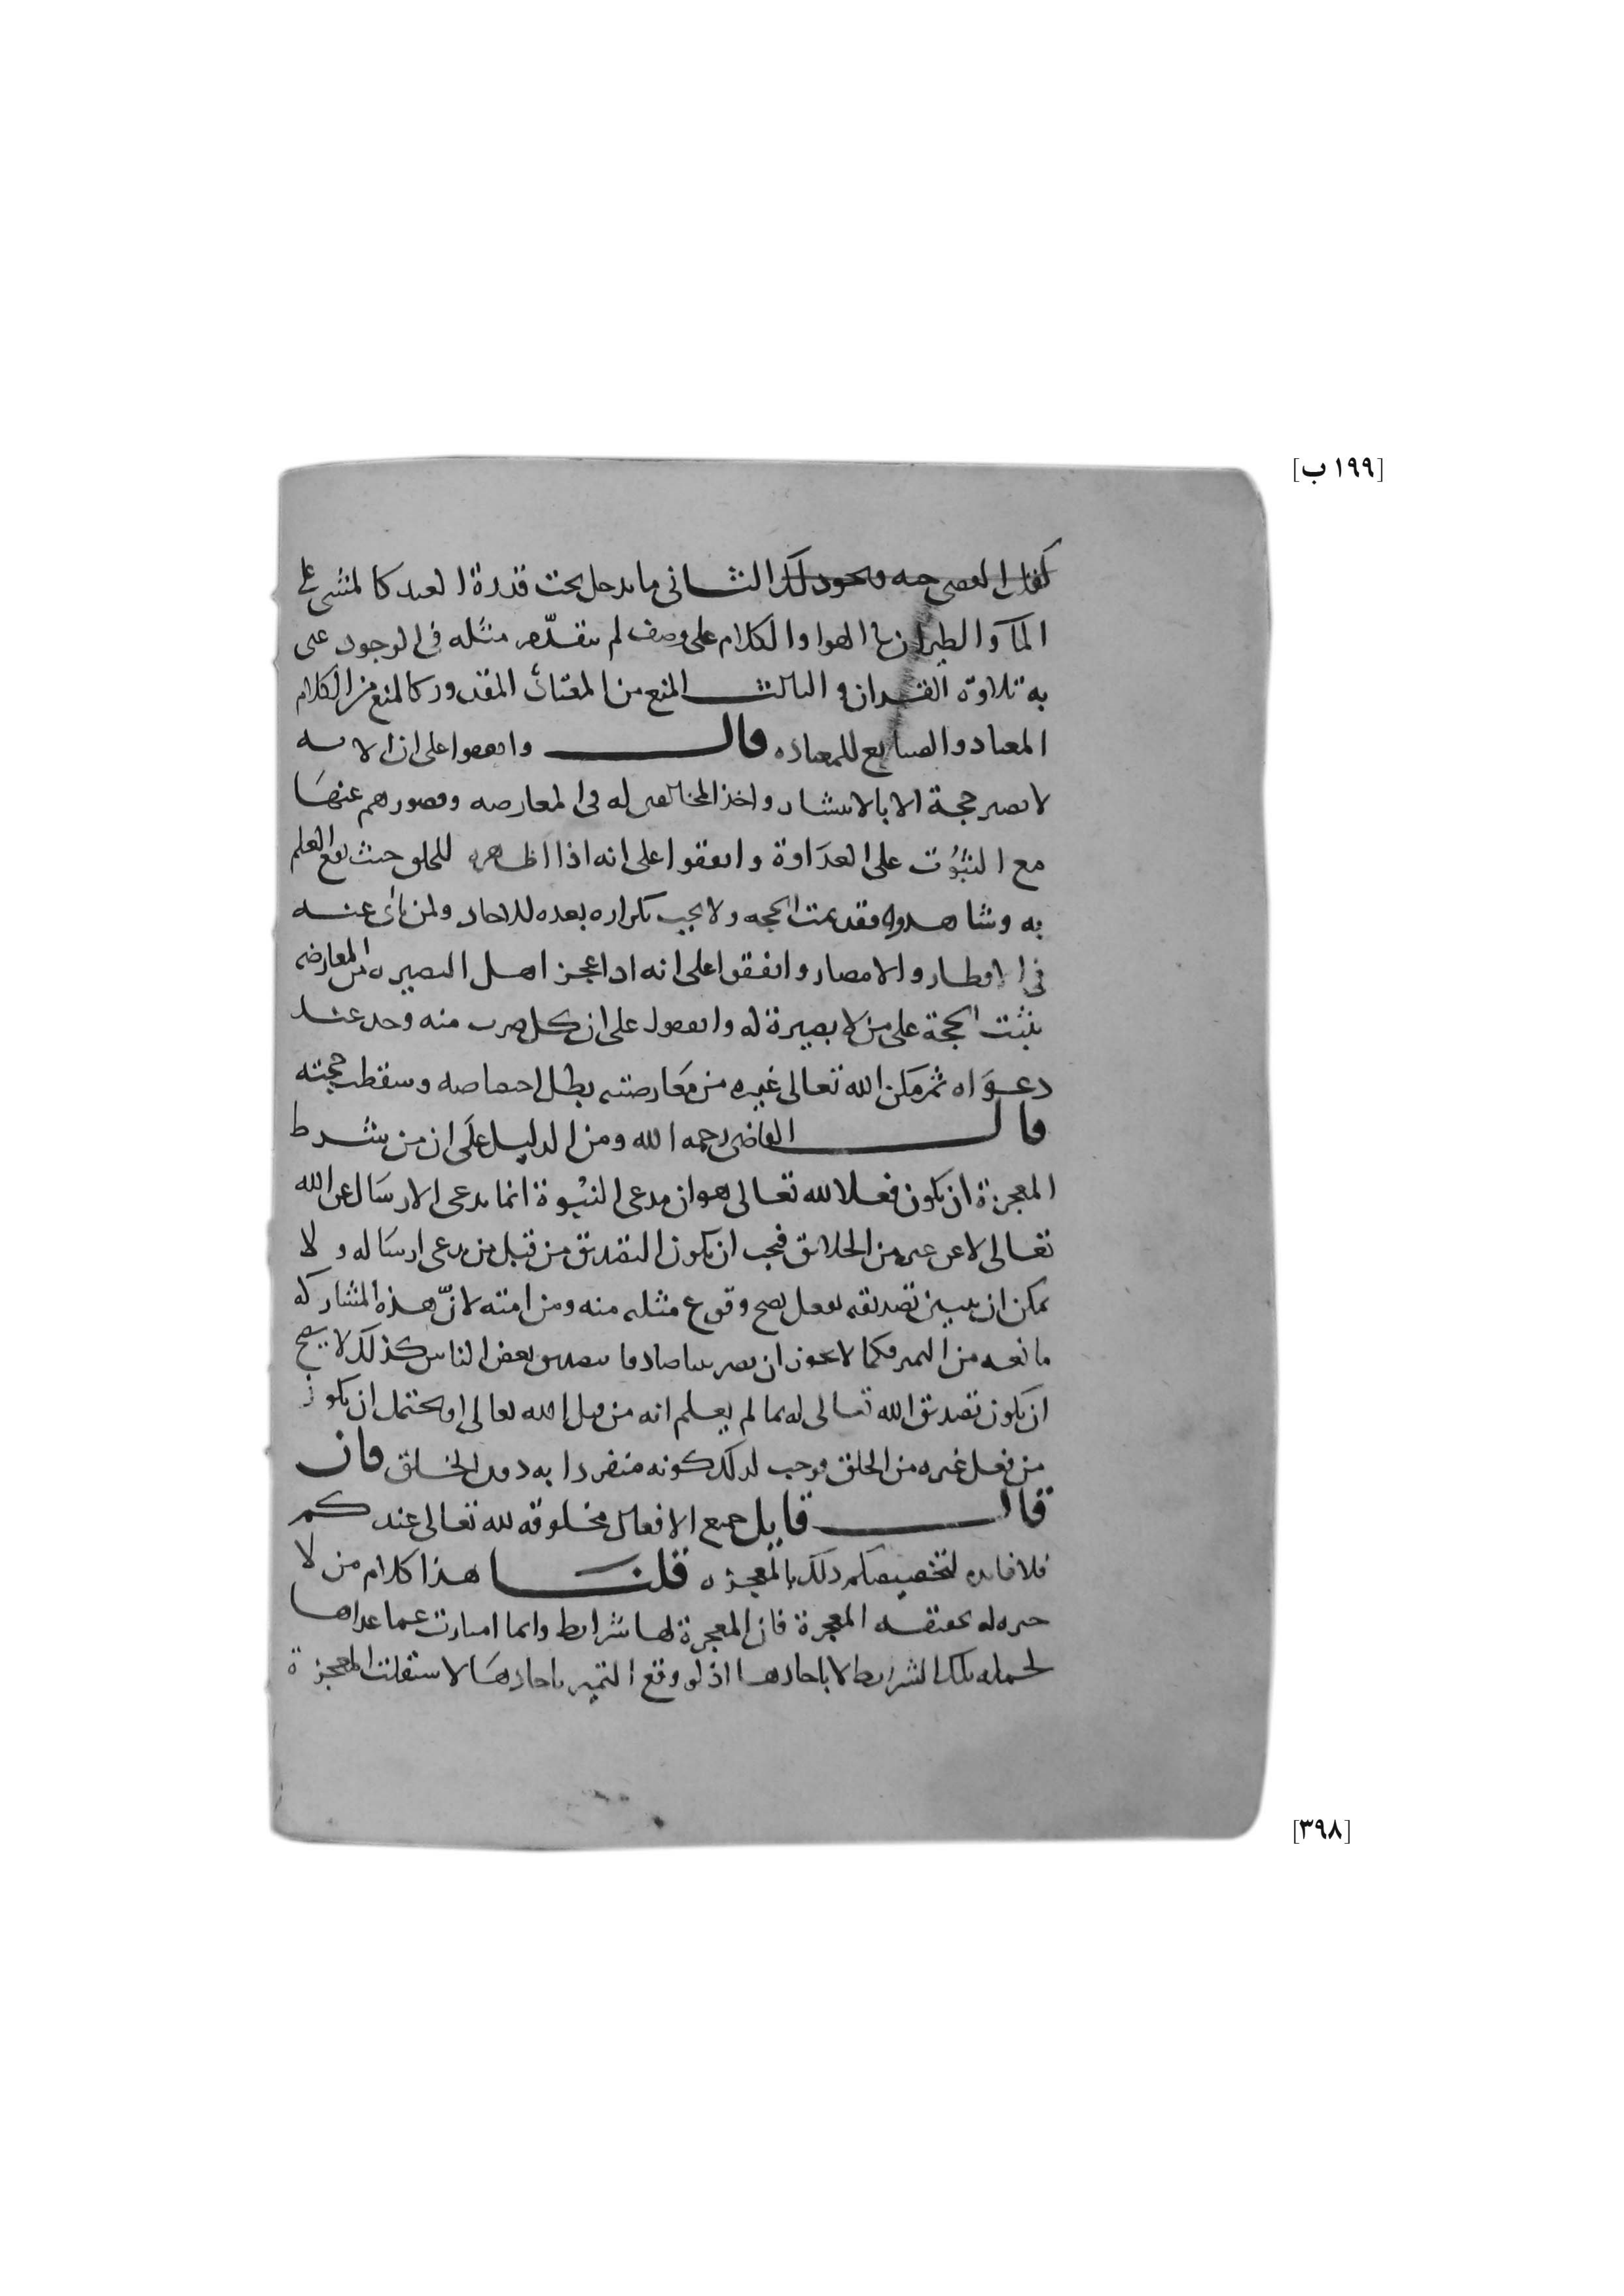 [١٩٩ ب]
الثانى ما يدخل تحت قدرة العبد كالمشى على
المآ والطيران فى الهوا والكلام على وصف لم يتقدّم مثله فى الوجود عنى
به تلاوة القران والثالث المنع من المعتاد المقدور كالمنع من الكلام
المعتاد والصنايع المعتاده قال واتفقوا على ان الايه
لا تصير حجة الا بالانتشار واخذ المخالفين له فى المعارضه وقصورهم عنها
مع الثبوت على العداوة واتفقوا على انه اذا اظهره للخلق حيث يقع العلم
به وشاهدوه فقد تمت الحجه ولا يجب تكراره بعده للاحاد ولمن نأى عنه
فى الاقطار والامصار واتفقوا على انه اذا عجز اهل البصيره من المعارضه
يثبت الحجة على من لا بصيرة له واتفقوا على ان كل ضرب منه وجد عند
دعواه ثم مكن الله تعالى غيره من معارضته بطل اختصاصه وسقطت حجته
قال القاضى رحمه الله ومن الدليل على ان من شرط
المعجزة ان يكون فعلا لله تعالى هو ان مدعى النبوة انما يدعى الارسال عن الله
تعالى لا عن غيره من الخلائق فيجب ان يكون التصديق من قبل من يدعى ارساله ولا
يمكن ان يبين تصديقه بفعل يصح وقوع مثله منه ومن امته لانّ هذه المشاركه
مانعه من التميز وكما لا يجوز ان يصير نبيا صادقا بتصديق بعض الناس كذلك لا يصح
ان يكون تصديق الله تعالى له بما لم يعلم انه من قبل الله تعالى او يحتمل ان يكون
من فعل غيره من الخلق فوجب لذلك كونه منفردا به دون الخلق فان
قال قايل جميع الافعال مخلوقه لله تعالى عندكم
فلا فايده لتخصيصكم ذلك بالمعجزه قلنا هذا كلام من لا
خبره له بحقيقه المعجزة فان المعجزة لها شرايط وانما امتازت عما عداها
لجمله تلك الشرايط لا باحادها اذ لو وقع التميز باحادها لاستقلت المعجزة
[٣٩٨]